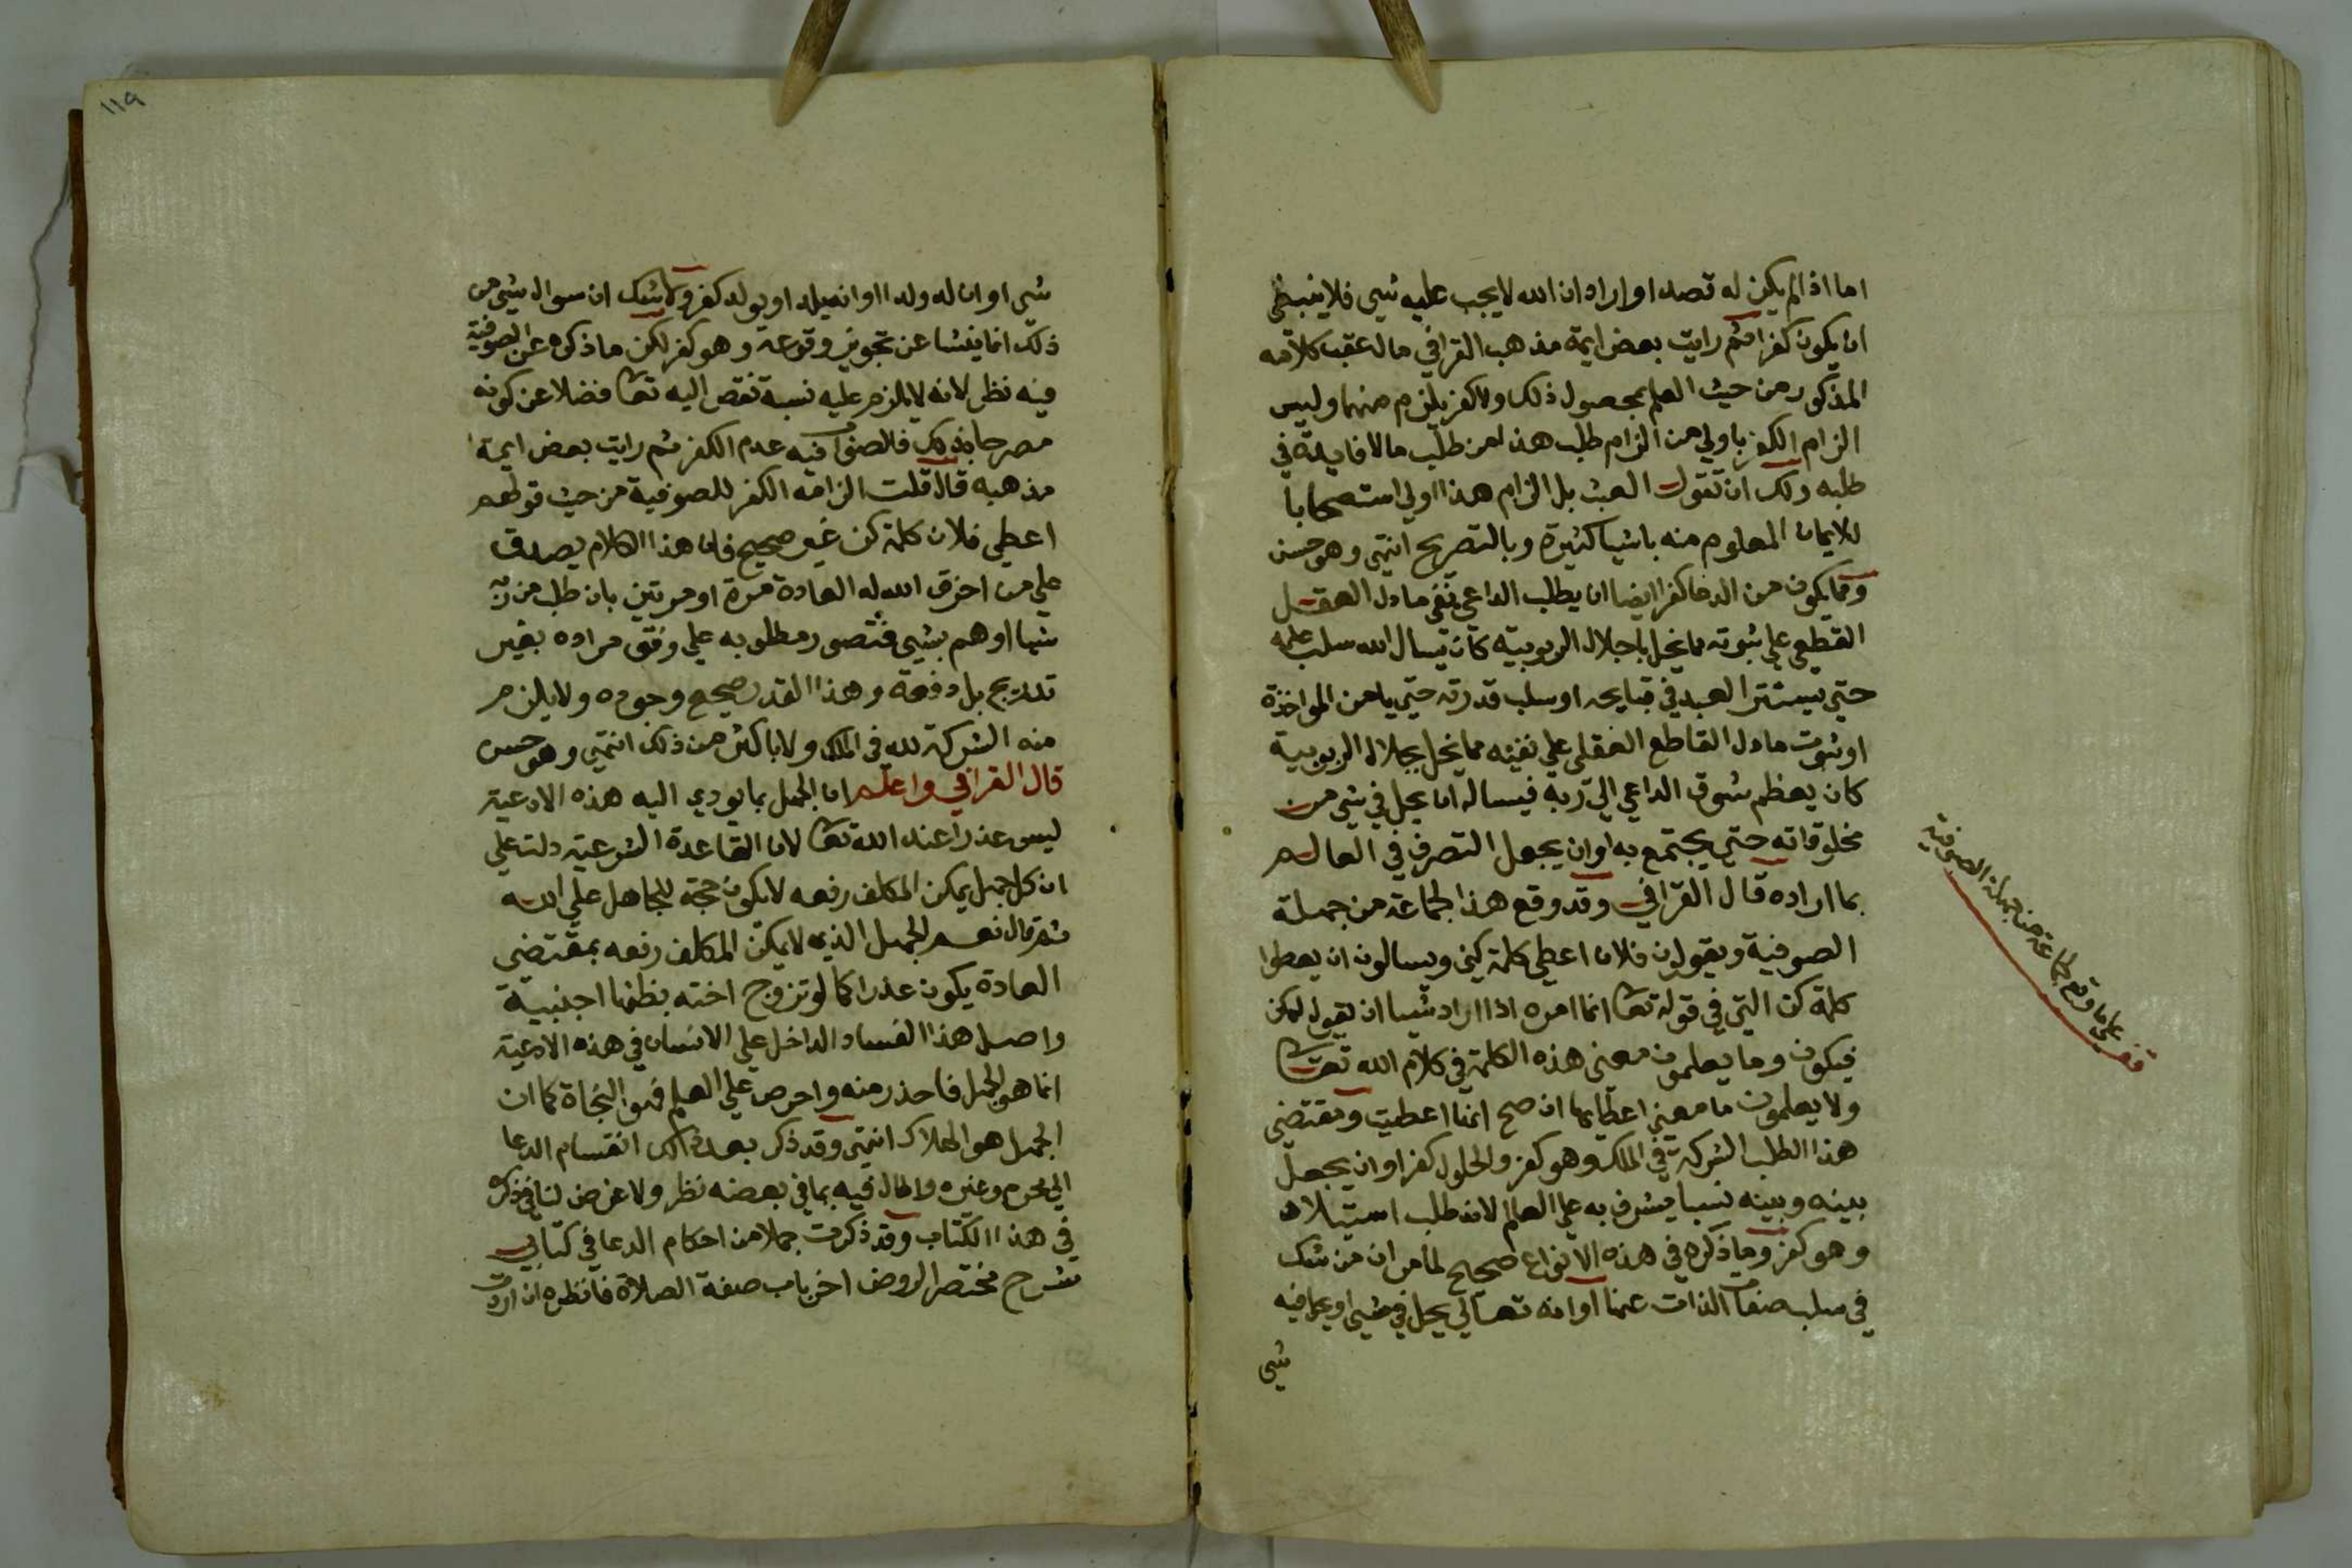 اما اذا لم يكن له قصد او اراد ان الله لا يجب عليه شي فلا ينبغي
ان يكون كفرا ثم رايت بعض ايمة مذهب القرافي قال عقب كلامه
المذكور من حيث العلم بحصول ذلك ولا كفر يلزم منهما وليس
الزام الكفر باولي من الزام طلب هذا من طلب ما لا فايدة في
طلبه ولك ان تقول العبث بل الزام هذا اولي استصحابا
للايمان المعلوم منه باشيا كثيرة وبالتصريح انتهى وهو حسن
ومما يكون من الدعا كفرا ايضا ان يطلب الداعي نفي ما دل العقل
القطعي علي ثبوته مما يخل باجلال الربوبية كان يسال الله سلب علمه
حتي يستتر العبد في قبايحه او سلب قدرته حتي يامن المواخذة
او ثبوت ما دل القاطع العقلي علي نفيه مما يخل بجلال الربوبية
كان يعظم شوق الداعي الي ربه فيساله ان يحل في شي من
مخلوقاته حتي يجتمع به او ان يجعل التصرف في العالم
بما اراده قال القرافي وقد وقع هذا لجماعة من جهلة
الصوفية ويقولون فلان اعطي كلمة كن ويسالون ان يعطوا
كلمة كن التي في قوله تعا انما امره اذا اراد شيا ان يقول له كن
فيكون وما يعلمون معني هذه الكلمة في كلام الله تعا
ولا يعلمون ما معني اعطايها ان صح انها اعطيت ومقتضي
هذا الطلب الشركة في الملك وهو كفر والحلول كفر او ان يجعل
بينه وبينه نسبا يشرف به علي العالم لانه طلب استيلاد
وهو كفر وما ذكره في هذه الانواع صحيح لما مر ان من شك
في سلب صفات الذات عنها او انه تعالي يحل في شي او يحل فيه
شي
قف علي ما وقع لجماعة من جهلة الصوفية
١١٩
شي او ان له ولدا او انه يلد او يولد كفر ولا شك ان سوال شي من
ذلك انما ينشا عن تجويز وقوعه وهو كفر لكن ما ذكره عن الصوفية
فيه نظر لانه لا يلزم عليه نسبة نقص اليه تعا فضلا عن كونه
مصرحا بذلك فالصواب فيه عدم الكفر ثم رايت بعض ايمة
مذهبه قال قلت الزامه الكفر للصوفية من حيث قولهم
اعطي فلان كلمة كن غير صحيح فان هذا الكلام يصدق
علي من اخرق الله له العادة مرة او مرتين بان طلب من ربه
شيا او هم بشي فتصور مطلوبه علي وفق مراده بغير
تدريج بل دفعة وهذا القدر صحيح وجوده ولا يلزم
منه الشركة لله في الملك ولا باكثر من ذلك انتهي وهو حسن
قال القرافي واعلم ان الجهل بما يودي اليه هذه الادعية
ليس عذرا عند الله تعا لان القاعدة الشرعية دلت علي
ان كل جهل يمكن المكلف رفعه لا يكون حجة للجاهل علي الله
ثم قال نعم الجهل الذي لا يمكن المكلف رفعه بمقتضي
العادة يكون عذرا كما لو تزوج اخته يظنها اجنبية
واصل هذا الفساد الداخل علي الانسان في هذه الادعية
انما هو الجهل فاحذر منه واحرص علي العلم فهو النجاة كما ان
الجهل هو الهلاك انتهي وقد ذكر بعد ذلك انقسام الدعا
الي محرم وغيره واطال فيه بما في بعضه نظر ولا غرض لنا في ذكره
في هذا الكتاب وقد ذكرت جملا من احكام الدعا في كتابي
شرح مختصر الروض اخر باب صفة الصلاة فانظره ان اردت